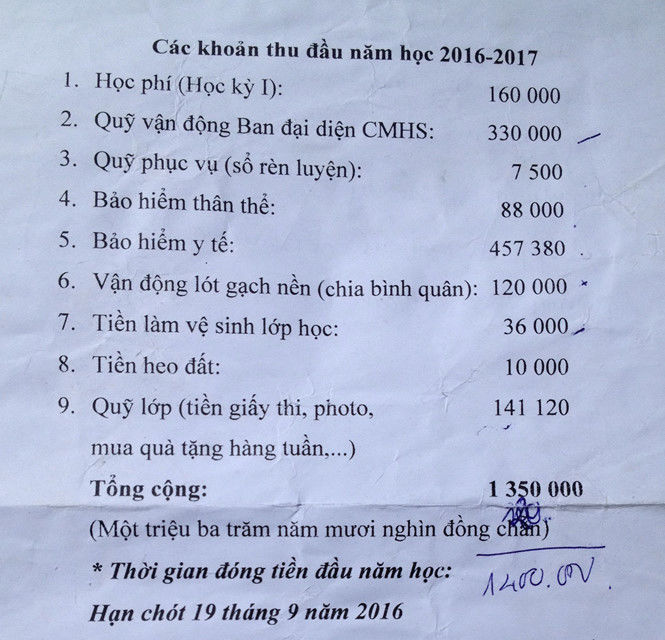 Các khoản thu đầu năm học 2016-2017
1. Học phí (Học kỳ I): 160 000
2. Quỹ vận động Ban đại diện CMHS: 330 000
3. Quỹ phục vụ (sổ rèn luyện): 7 500
4. Bảo hiểm thân thể: 88 000
5. Bảo hiểm y tế: 457 380
6. Vận động lót gạch nền (chia bình quân): 120 000
7. Tiền làm vệ sinh lớp học: 36 000
8. Tiền heo đất: 10 000
9. Quỹ lớp (tiền giấy thi, photo, 141 120
mua quà tặng hàng tuần,...)
Tổng cộng: 1 350 000
(Một triệu ba trăm năm mươi nghìn đồng chẵn)
* Thời gian đóng tiền đầu năm học:
1400.000
Hạn chót 19 tháng 9 năm 2016